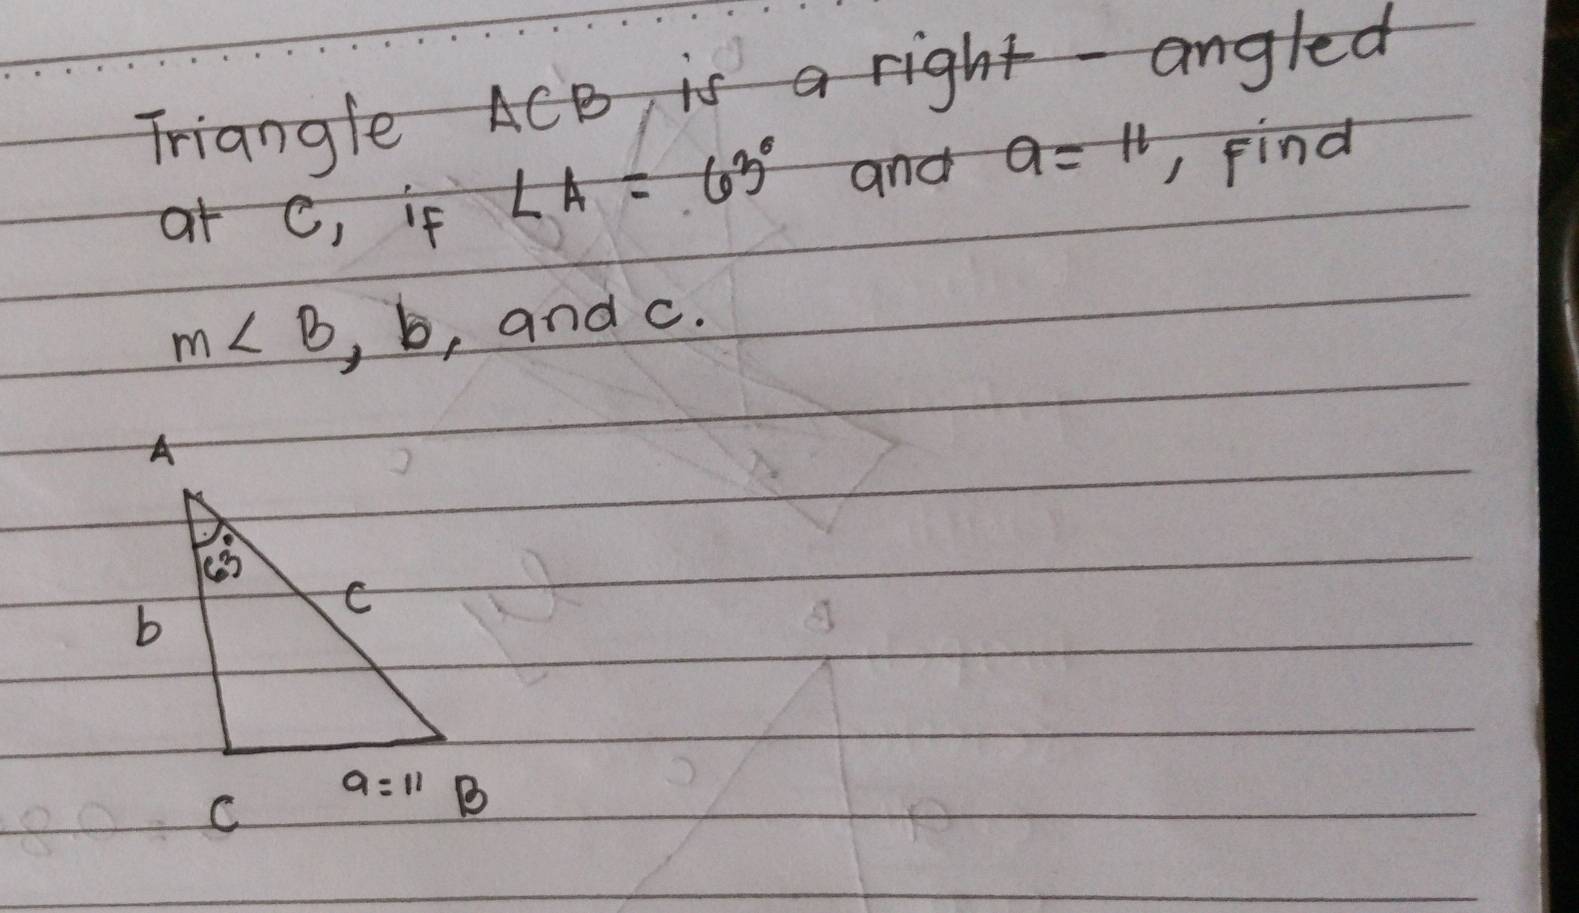 Triangle ACB, is a right-angled
at C, if ∠A = 63° and a = 11, find
m< B, b, and c.
A
63°
b
c
a = 11
B
C